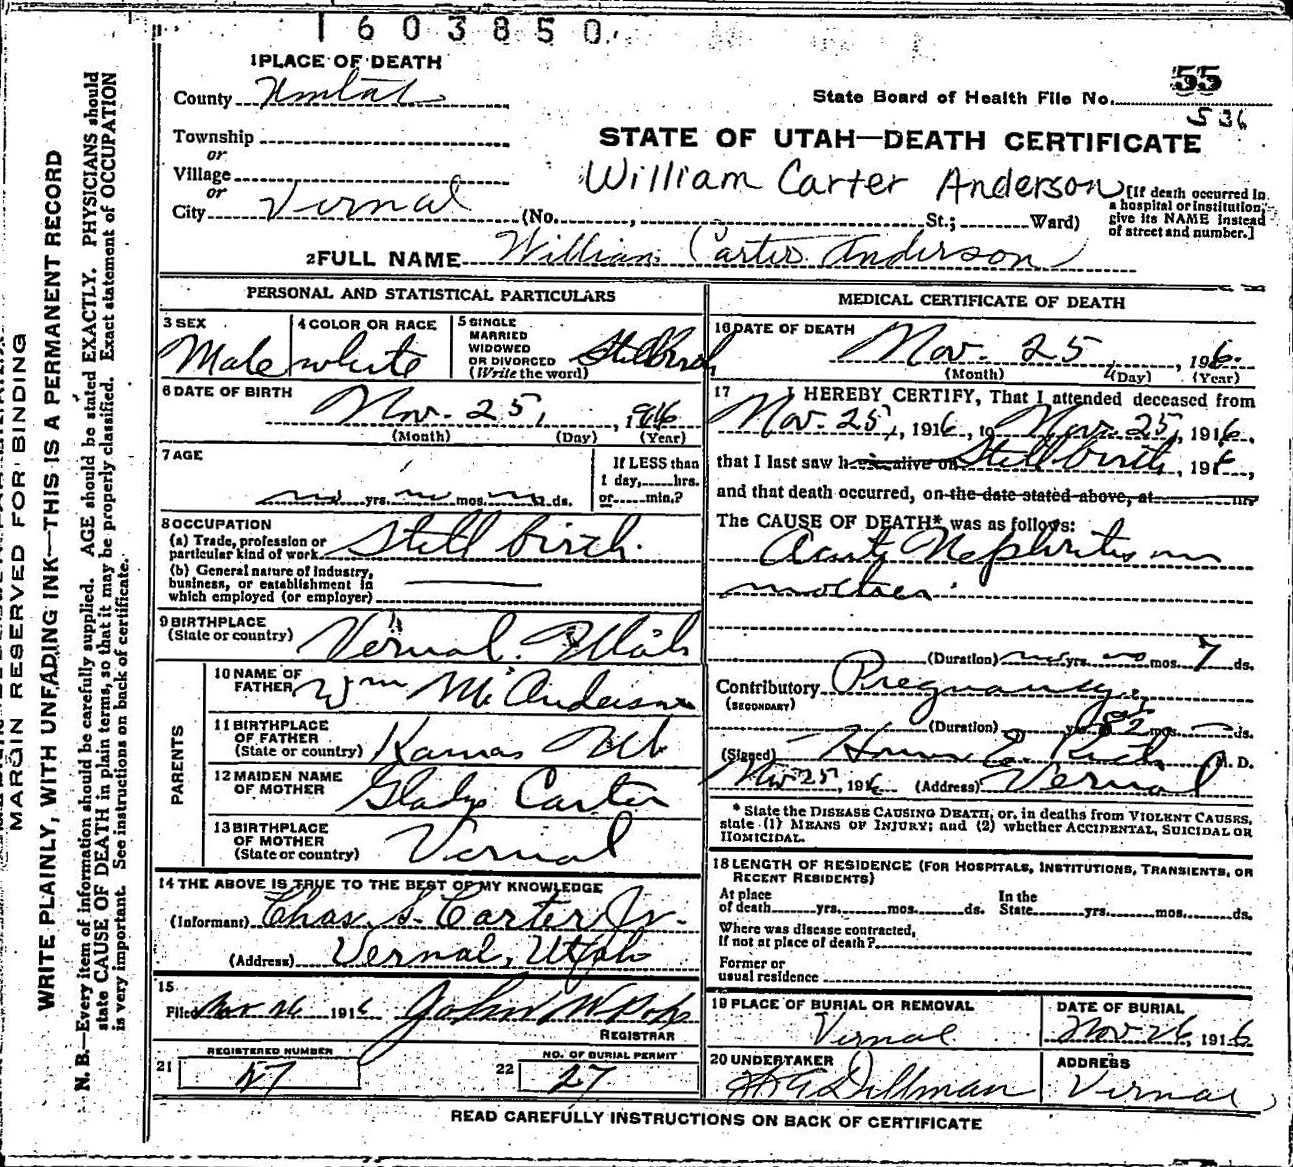 1603850
1 PLACE OF DEATH
55
County Uintah
State Board of Health File No.
536
Township
or
STATE OF UTAH—DEATH CERTIFICATE
Village
or
William Carter Anderson
City Vernal (No. , St.; Ward)
[If death occurred in
a hospital or institution,
give its NAME instead
of street and number.]
2 FULL NAME William Carter Anderson
PERSONAL AND STATISTICAL PARTICULARS
3 SEX
Male
4 COLOR OR RACE
white
5 SINGLE
MARRIED
WIDOWED
OR DIVORCED
(Write the word)
Stillbirth
6 DATE OF BIRTH
Nov. 25, 1916
(Month) (Day) (Year)
7 AGE
no yrs. no mos. no ds.
If LESS than
1 day,......hrs.
or......min.?
8 OCCUPATION
(a) Trade, profession or
particular kind of work Still birth
(b) General nature of industry,
business, or establishment in
which employed (or employer)
9 BIRTHPLACE
(State or country) Vernal. Utah
PARENTS
10 NAME OF
FATHER Wm M. Anderson
11 BIRTHPLACE
OF FATHER
(State or country) Kamas Ut
12 MAIDEN NAME
OF MOTHER Gladys Carter
13 BIRTHPLACE
OF MOTHER
(State or country) Vernal
14 THE ABOVE IS TRUE TO THE BEST OF MY KNOWLEDGE
(Informant) Chas. S. Carter Jr.
(Address) Vernal, Utah
15
Filed Nov 26 1916 John W
REGISTRAR
21 REGISTERED NUMBER
47
22 NO. OF BURIAL PERMIT
27
MEDICAL CERTIFICATE OF DEATH
16 DATE OF DEATH
Nov. 25, 1916.
(Month) (Day) (Year)
17 I HEREBY CERTIFY, That I attended deceased from
Nov. 25, 1916, to Nov. 25, 1916,
that I last saw h alive on Stillbirth, 191 ,
and that death occurred, on the date stated above, at m
The CAUSE OF DEATH* was as follows:
Acute Nephritis in
mother.
(Duration) no yrs. no mos. 7 ds.
Contributory Pregnancy
(SECONDARY)
(Duration) yrs. 8½ mos. ds.
(Signed) M. D.
Nov 25, 1916 (Address) Vernal
* State the DISEASE CAUSING DEATH, or, in deaths from VIOLENT CAUSES,
state (1) MEANS OF INJURY; and (2) whether ACCIDENTAL, SUICIDAL OR
HOMICIDAL.
18 LENGTH OF RESIDENCE (FOR HOSPITALS, INSTITUTIONS, TRANSIENTS, OR
RECENT RESIDENTS)
At place
of death......yrs.......mos.......ds.
In the
State......yrs.......mos.......ds.
Where was disease contracted,
if not at place of death?
Former or
usual residence
19 PLACE OF BURIAL OR REMOVAL
Vernal
DATE OF BURIAL
Nov 26, 1916
20 UNDERTAKER
Dillman
ADDRESS
Vernal
READ CAREFULLY INSTRUCTIONS ON BACK OF CERTIFICATE
MARGIN RESERVED FOR BINDING
WRITE PLAINLY, WITH UNFADING INK—THIS IS A PERMANENT RECORD
N. B.—Every item of information should be carefully supplied. AGE should be stated EXACTLY. PHYSICIANS should
state CAUSE OF DEATH in plain terms, so that it may be properly classified. Exact statement of OCCUPATION
is very important. See instructions on back of certificate.